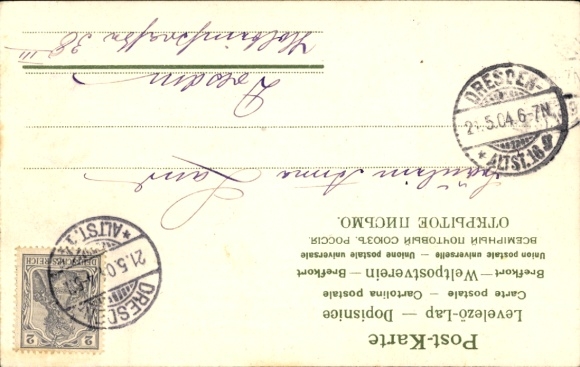 Post-Karte
Levelező-Lap — Dopisnice
Carte postale — Cartolina postale
Brefkort — Weltpostverein — Brefkort
Union postale universelle — Unione postale universale
ВСЕМІРНЫЙ ПОЧТОВЫЙ СОЮЗЪ. РОССІЯ.
ОТКРЫТОЕ ПИСЬМО.
2 2
DEUTSCHES REICH
DRESDEN-
21.5.04
* ALTST.
DRESDEN-
21.5.04.6-7N.
* ALTST.16
Fräulein Anna
Dresden
38 III